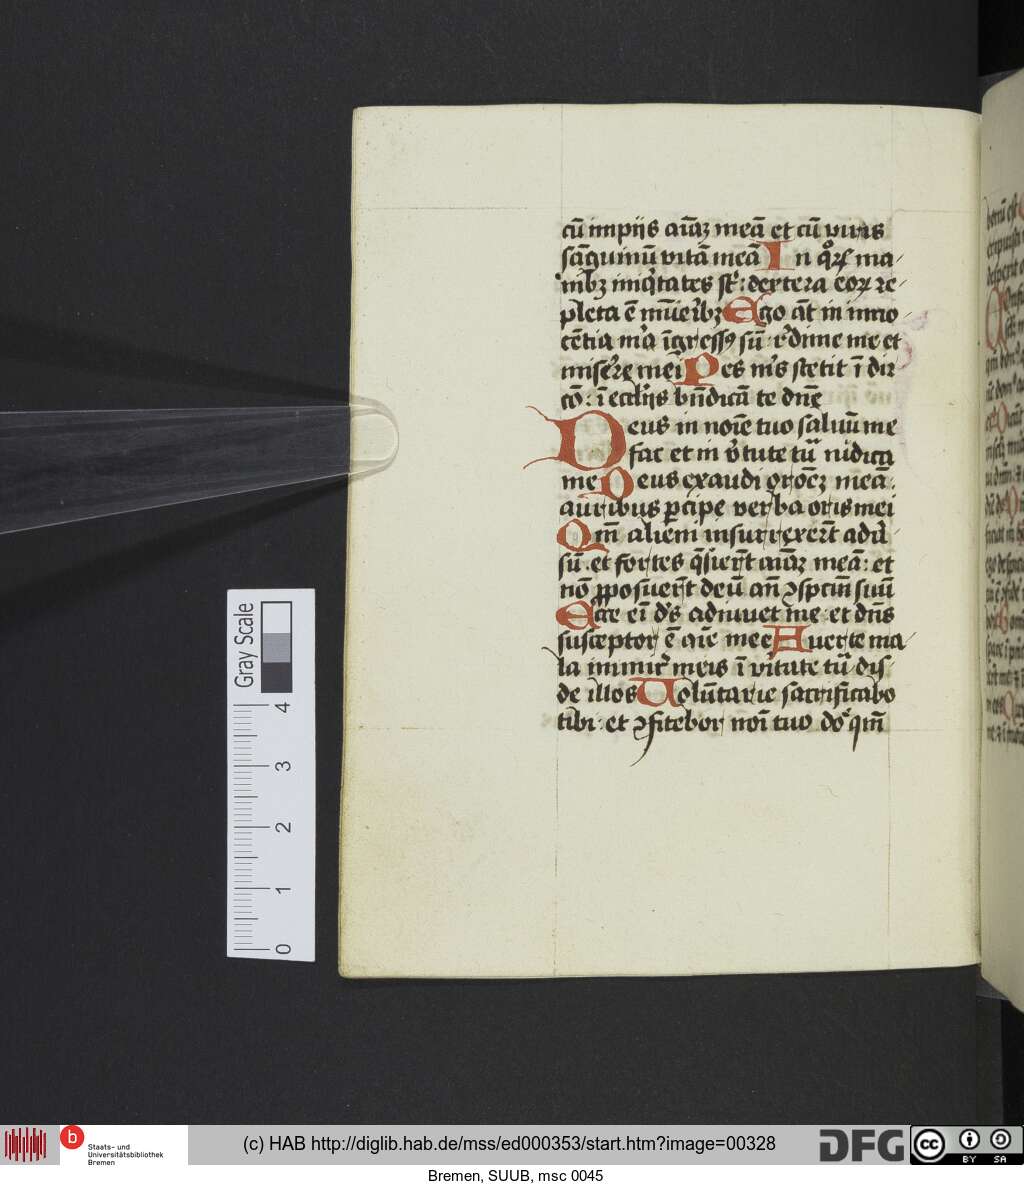 cū impijs aīaꝫ meā et cū viris
sāguinū vitā meā In qͦꝝ ma-
nibꝫ iniq̇tates st̄: dextera eoꝝ re-
pleta ē mūeribꝫ Ego āt in inno
cētia mͣa īgressꝰ sū: r̓dime me et
misere̓ mei Pes mꝰs stetit ī dir
cō: ī eccl̓ijs bn̄dicā te dn̄e
Deus in noīe tuo saluū me
fac et in v̓tute tū iudica
me Deus exaudi oroēꝫ meā.
auribus p̱cipe verba oris mei
Qm̄ alieni insurrexer̄t ad
sū. et fortes q̄sier̄t aīaꝫ meā: et
nō ꝓposuer̄t deū an̄ ꝯspcm̄ suū
Ecce ei̅ dꝰs adiuuet me: et dn̄s
susceptor ē aīe mee Auerte ma
la inimic̓ meis ī v̓itate tū dis
de illos Voluntarie sacrificabo
tibi: et ꝯfitebor noī tuo do̓ qm̄
Gray Scale
4
3
2
1
0
b
Staats- und
Universitätsbibliothek
Bremen
(c) HAB http://diglib.hab.de/mss/ed000353/start.htm?image=00328
DFG
cc
BY SA
Bremen, SUUB, msc 0045